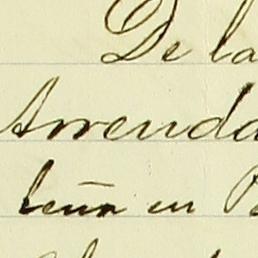 De la
Arrenda
leña en